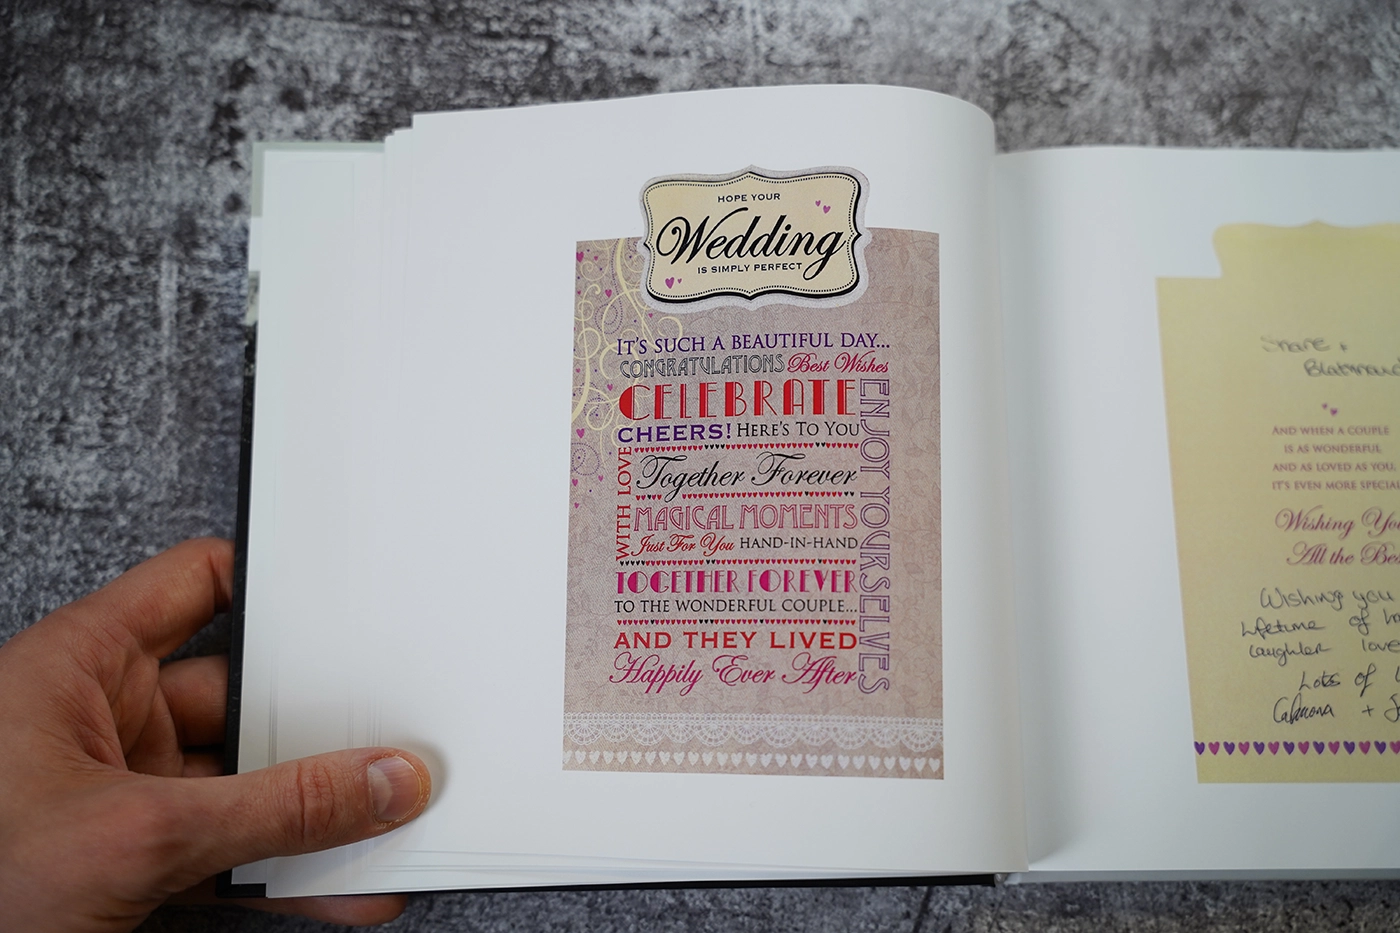 HOPE YOUR
Wedding
IS SIMPLY PERFECT
IT'S SUCH A BEAUTIFUL DAY...
CONGRATULATIONS Best Wishes
CELEBRATE
CHEERS! HERE'S TO YOU
WITH LOVE
Together Forever
MAGICAL MOMENTS
Just For You HAND-IN-HAND
TOGETHER FOREVER
TO THE WONDERFUL COUPLE...
AND THEY LIVED
Happily Ever After
ENJOY YOURSELVES
AND WHEN A COUPLE
IS AS WONDERFUL
AND AS LOVED AS YOU,
IT'S EVEN MORE SPECIAL
Wishing You
All the Best
Wishing you
Lifetime of
laughter love
Lots of
+